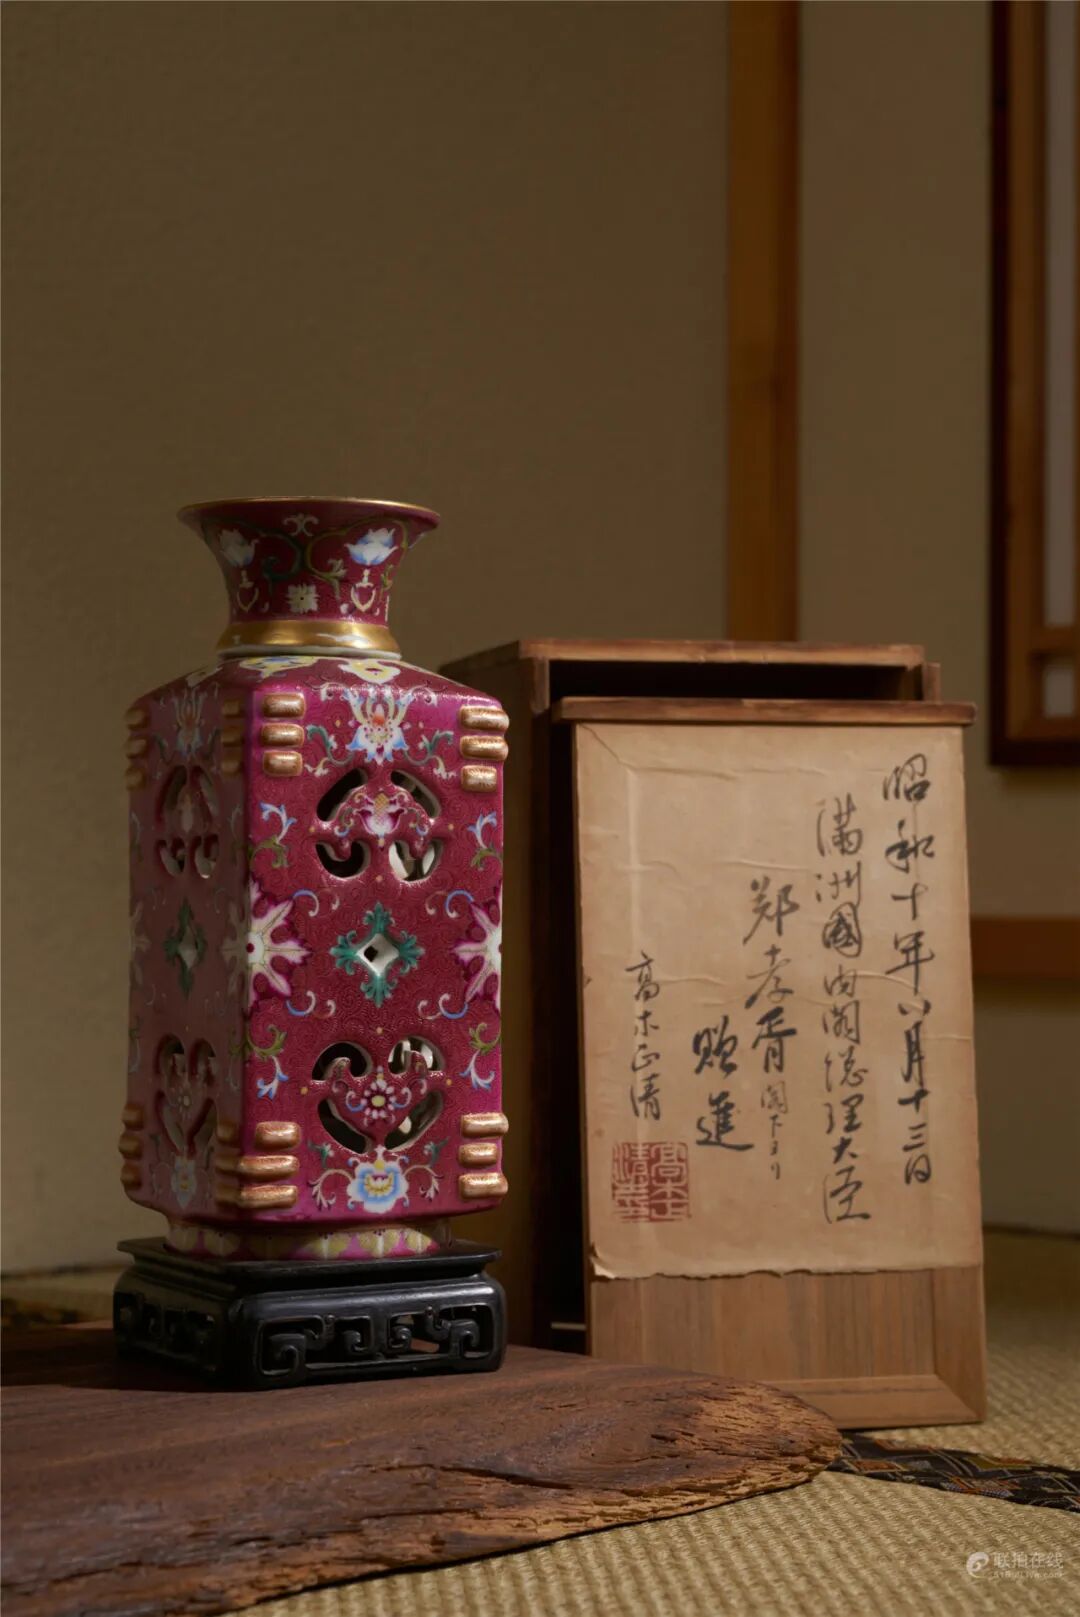 昭和十年八月十三日
満洲國内閣総理大臣
鄭孝胥閣下ヨリ
贈進
高木正清
联拍在线